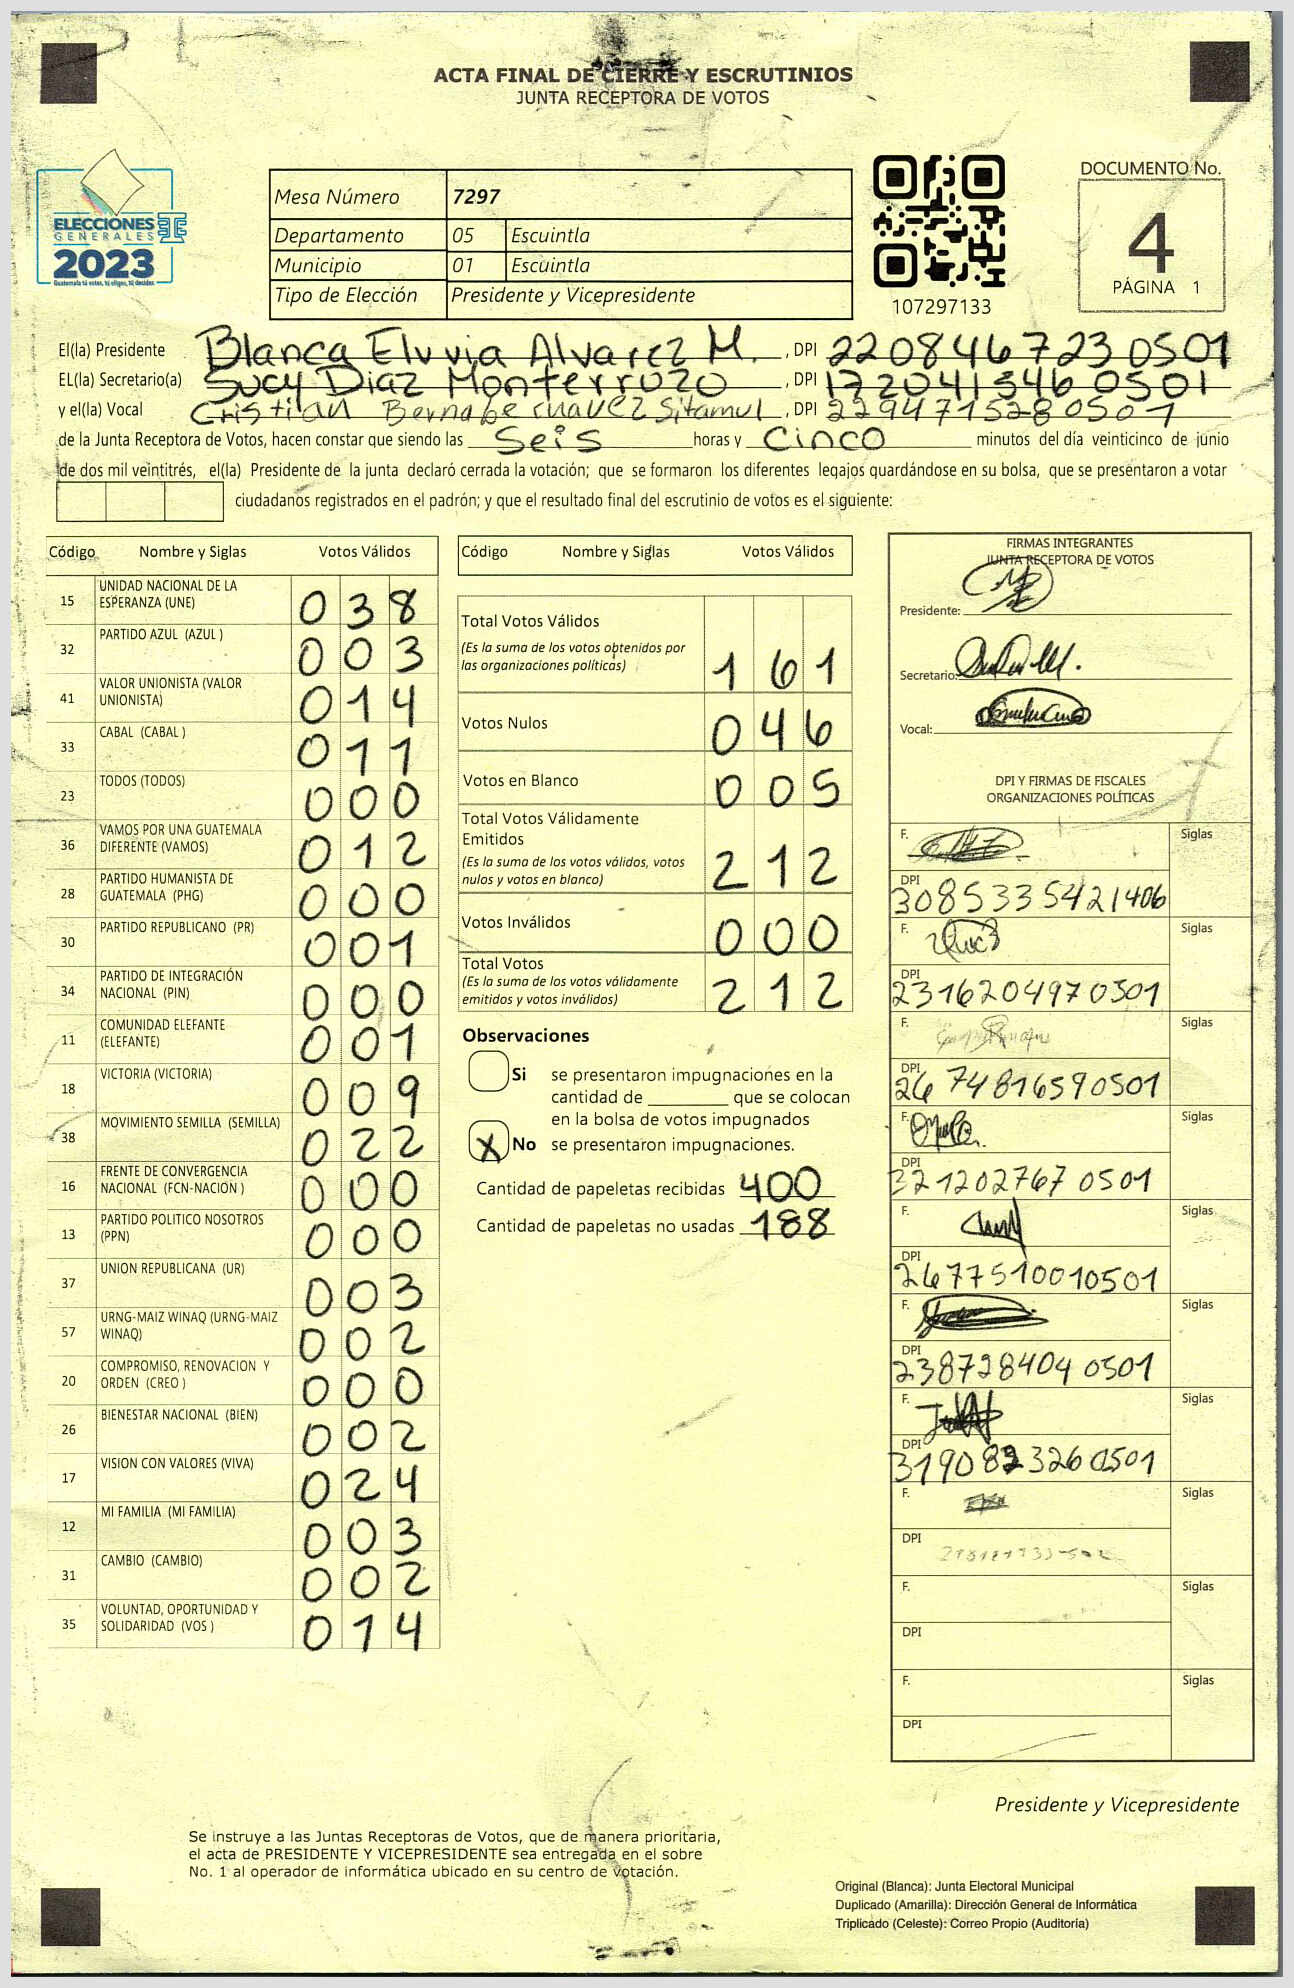 ACTA FINAL DE CIERRE Y ESCRUTINIOS
JUNTA RECEPTORA DE VOTOS
ELECCIONES
GENERALES
2023
Guatemala tú votas, tú eliges, tú decides
Mesa Número 7297
Departamento 05 Escuintla
Municipio 01 Escuintla
Tipo de Elección Presidente y Vicepresidente
107297133
DOCUMENTO No.
4
PÁGINA 1
El(la) Presidente Blanca Eluvia Alvarez M. , DPI 2208467230501
EL(la) Secretario(a) Sucy Diaz Monterrozo , DPI 1722041546 0501
y el(la) Vocal Cristian Bernabe chavez Sitamul , DPI 2294715280501
de la Junta Receptora de Votos, hacen constar que siendo las Seis horas y Cinco minutos del día veinticinco de junio
de dos mil veintitrés, el(la) Presidente de la junta declaró cerrada la votación; que se formaron los diferentes legajos guardándose en su bolsa, que se presentaron a votar
ciudadanos registrados en el padrón; y que el resultado final del escrutinio de votos es el siguiente:
Código Nombre y Siglas Votos Válidos
15 UNIDAD NACIONAL DE LA ESPERANZA (UNE) 038
32 PARTIDO AZUL (AZUL ) 003
41 VALOR UNIONISTA (VALOR UNIONISTA) 014
33 CABAL (CABAL ) 011
23 TODOS (TODOS) 000
36 VAMOS POR UNA GUATEMALA DIFERENTE (VAMOS) 012
28 PARTIDO HUMANISTA DE GUATEMALA (PHG) 000
30 PARTIDO REPUBLICANO (PR) 001
34 PARTIDO DE INTEGRACIÓN NACIONAL (PIN) 000
11 COMUNIDAD ELEFANTE (ELEFANTE) 001
18 VICTORIA (VICTORIA) 009
38 MOVIMIENTO SEMILLA (SEMILLA) 022
16 FRENTE DE CONVERGENCIA NACIONAL (FCN-NACION ) 000
13 PARTIDO POLITICO NOSOTROS (PPN) 000
37 UNION REPUBLICANA (UR) 003
57 URNG-MAIZ WINAQ (URNG-MAIZ WINAQ) 002
20 COMPROMISO, RENOVACION Y ORDEN (CREO ) 000
26 BIENESTAR NACIONAL (BIEN) 002
17 VISION CON VALORES (VIVA) 024
12 MI FAMILIA (MI FAMILIA) 003
31 CAMBIO (CAMBIO) 002
35 VOLUNTAD, OPORTUNIDAD Y SOLIDARIDAD (VOS ) 014
Código Nombre y Siglas Votos Válidos
Total Votos Válidos
(Es la suma de los votos obtenidos por
las organizaciones políticas) 161
Votos Nulos 046
Votos en Blanco 005
Total Votos Válidamente
Emitidos
(Es la suma de los votos válidos, votos
nulos y votos en blanco) 212
Votos Inválidos 000
Total Votos
(Es la suma de los votos válidamente
emitidos y votos inválidos) 212
Observaciones
Si se presentaron impugnaciones en la
cantidad de ________ que se colocan
en la bolsa de votos impugnados
X No se presentaron impugnaciones.
Cantidad de papeletas recibidas 400
Cantidad de papeletas no usadas 188
FIRMAS INTEGRANTES
JUNTA RECEPTORA DE VOTOS
Presidente:
Secretario:
Vocal:
DPI Y FIRMAS DE FISCALES
ORGANIZACIONES POLÍTICAS
F. Siglas
DPI
3085335421406
F. Siglas
DPI
2316204970501
F. Siglas
DPI
2674816590501
F. Siglas
DPI
321202767 0501
F. Siglas
DPI
2677510010501
F. Siglas
DPI
238728404 0501
F. Siglas
DPI
319082326 0501
F. Siglas
DPI
F. Siglas
DPI
F. Siglas
DPI
Presidente y Vicepresidente
Se instruye a las Juntas Receptoras de Votos, que de manera prioritaria,
el acta de PRESIDENTE Y VICEPRESIDENTE sea entregada en el sobre
No. 1 al operador de informática ubicado en su centro de votación.
Original (Blanca): Junta Electoral Municipal
Duplicado (Amarilla): Dirección General de Informática
Triplicado (Celeste): Correo Propio (Auditoria)